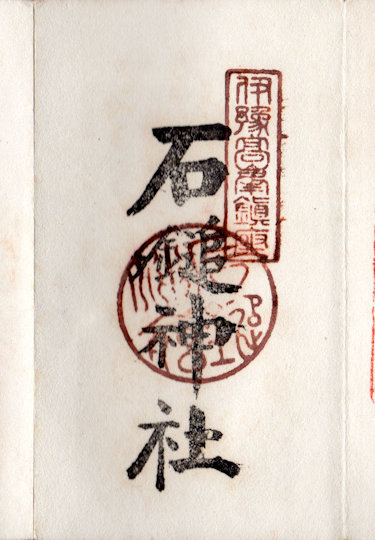 伊豫高峯鎮座
石鎚神社